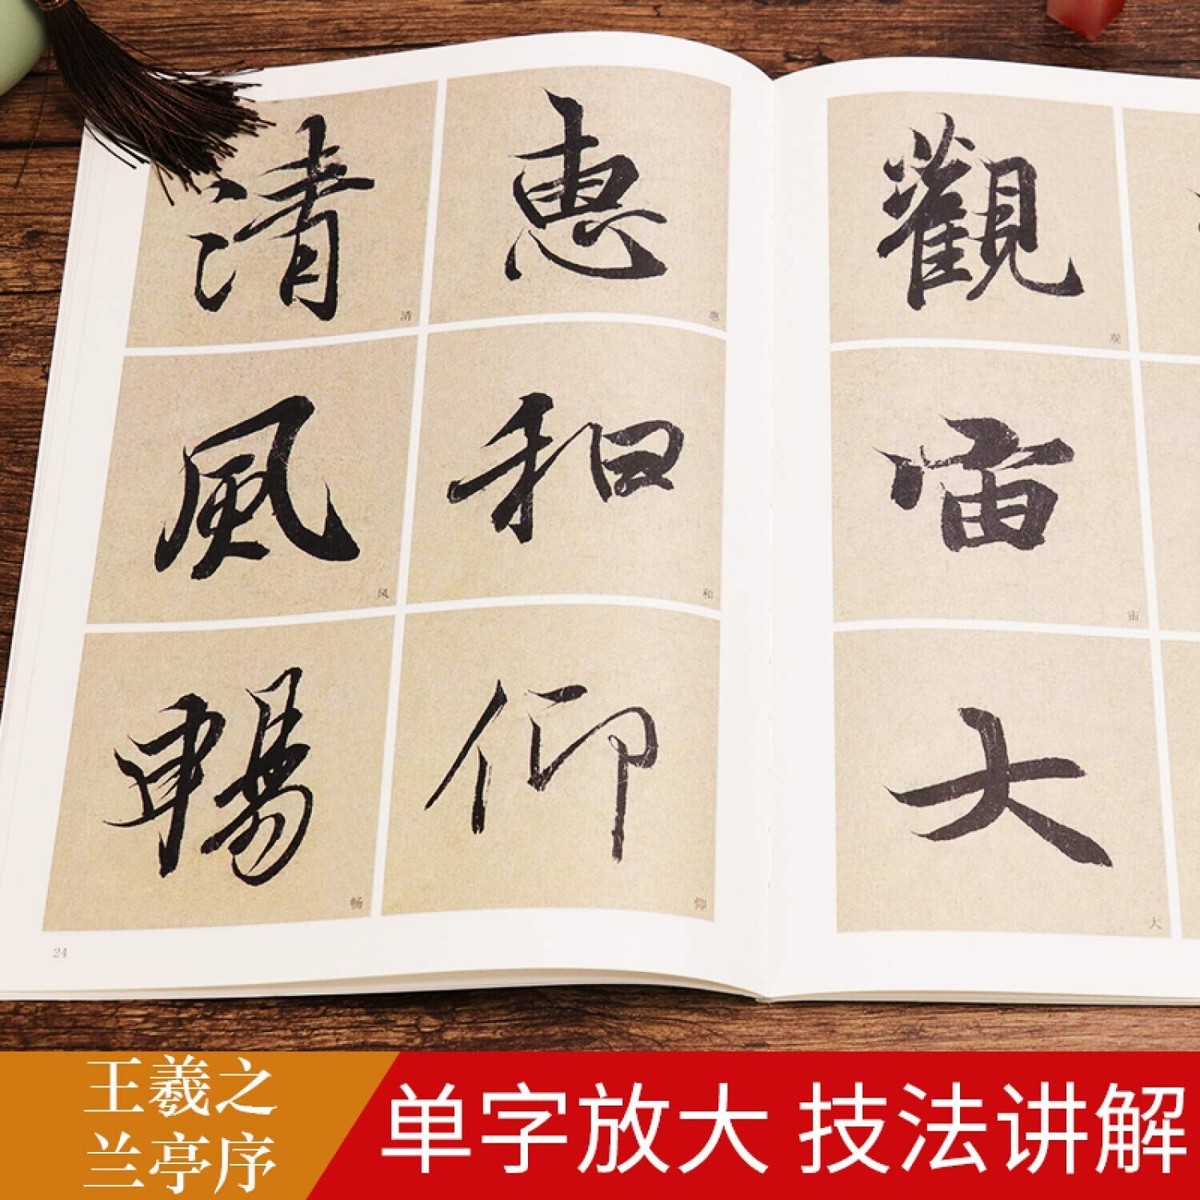 清 惠 觀
清 惠 观
風 和 宙
风 和 宙
暢 仰 大
畅 仰 大
24
王羲之
兰亭序
单字放大 技法讲解